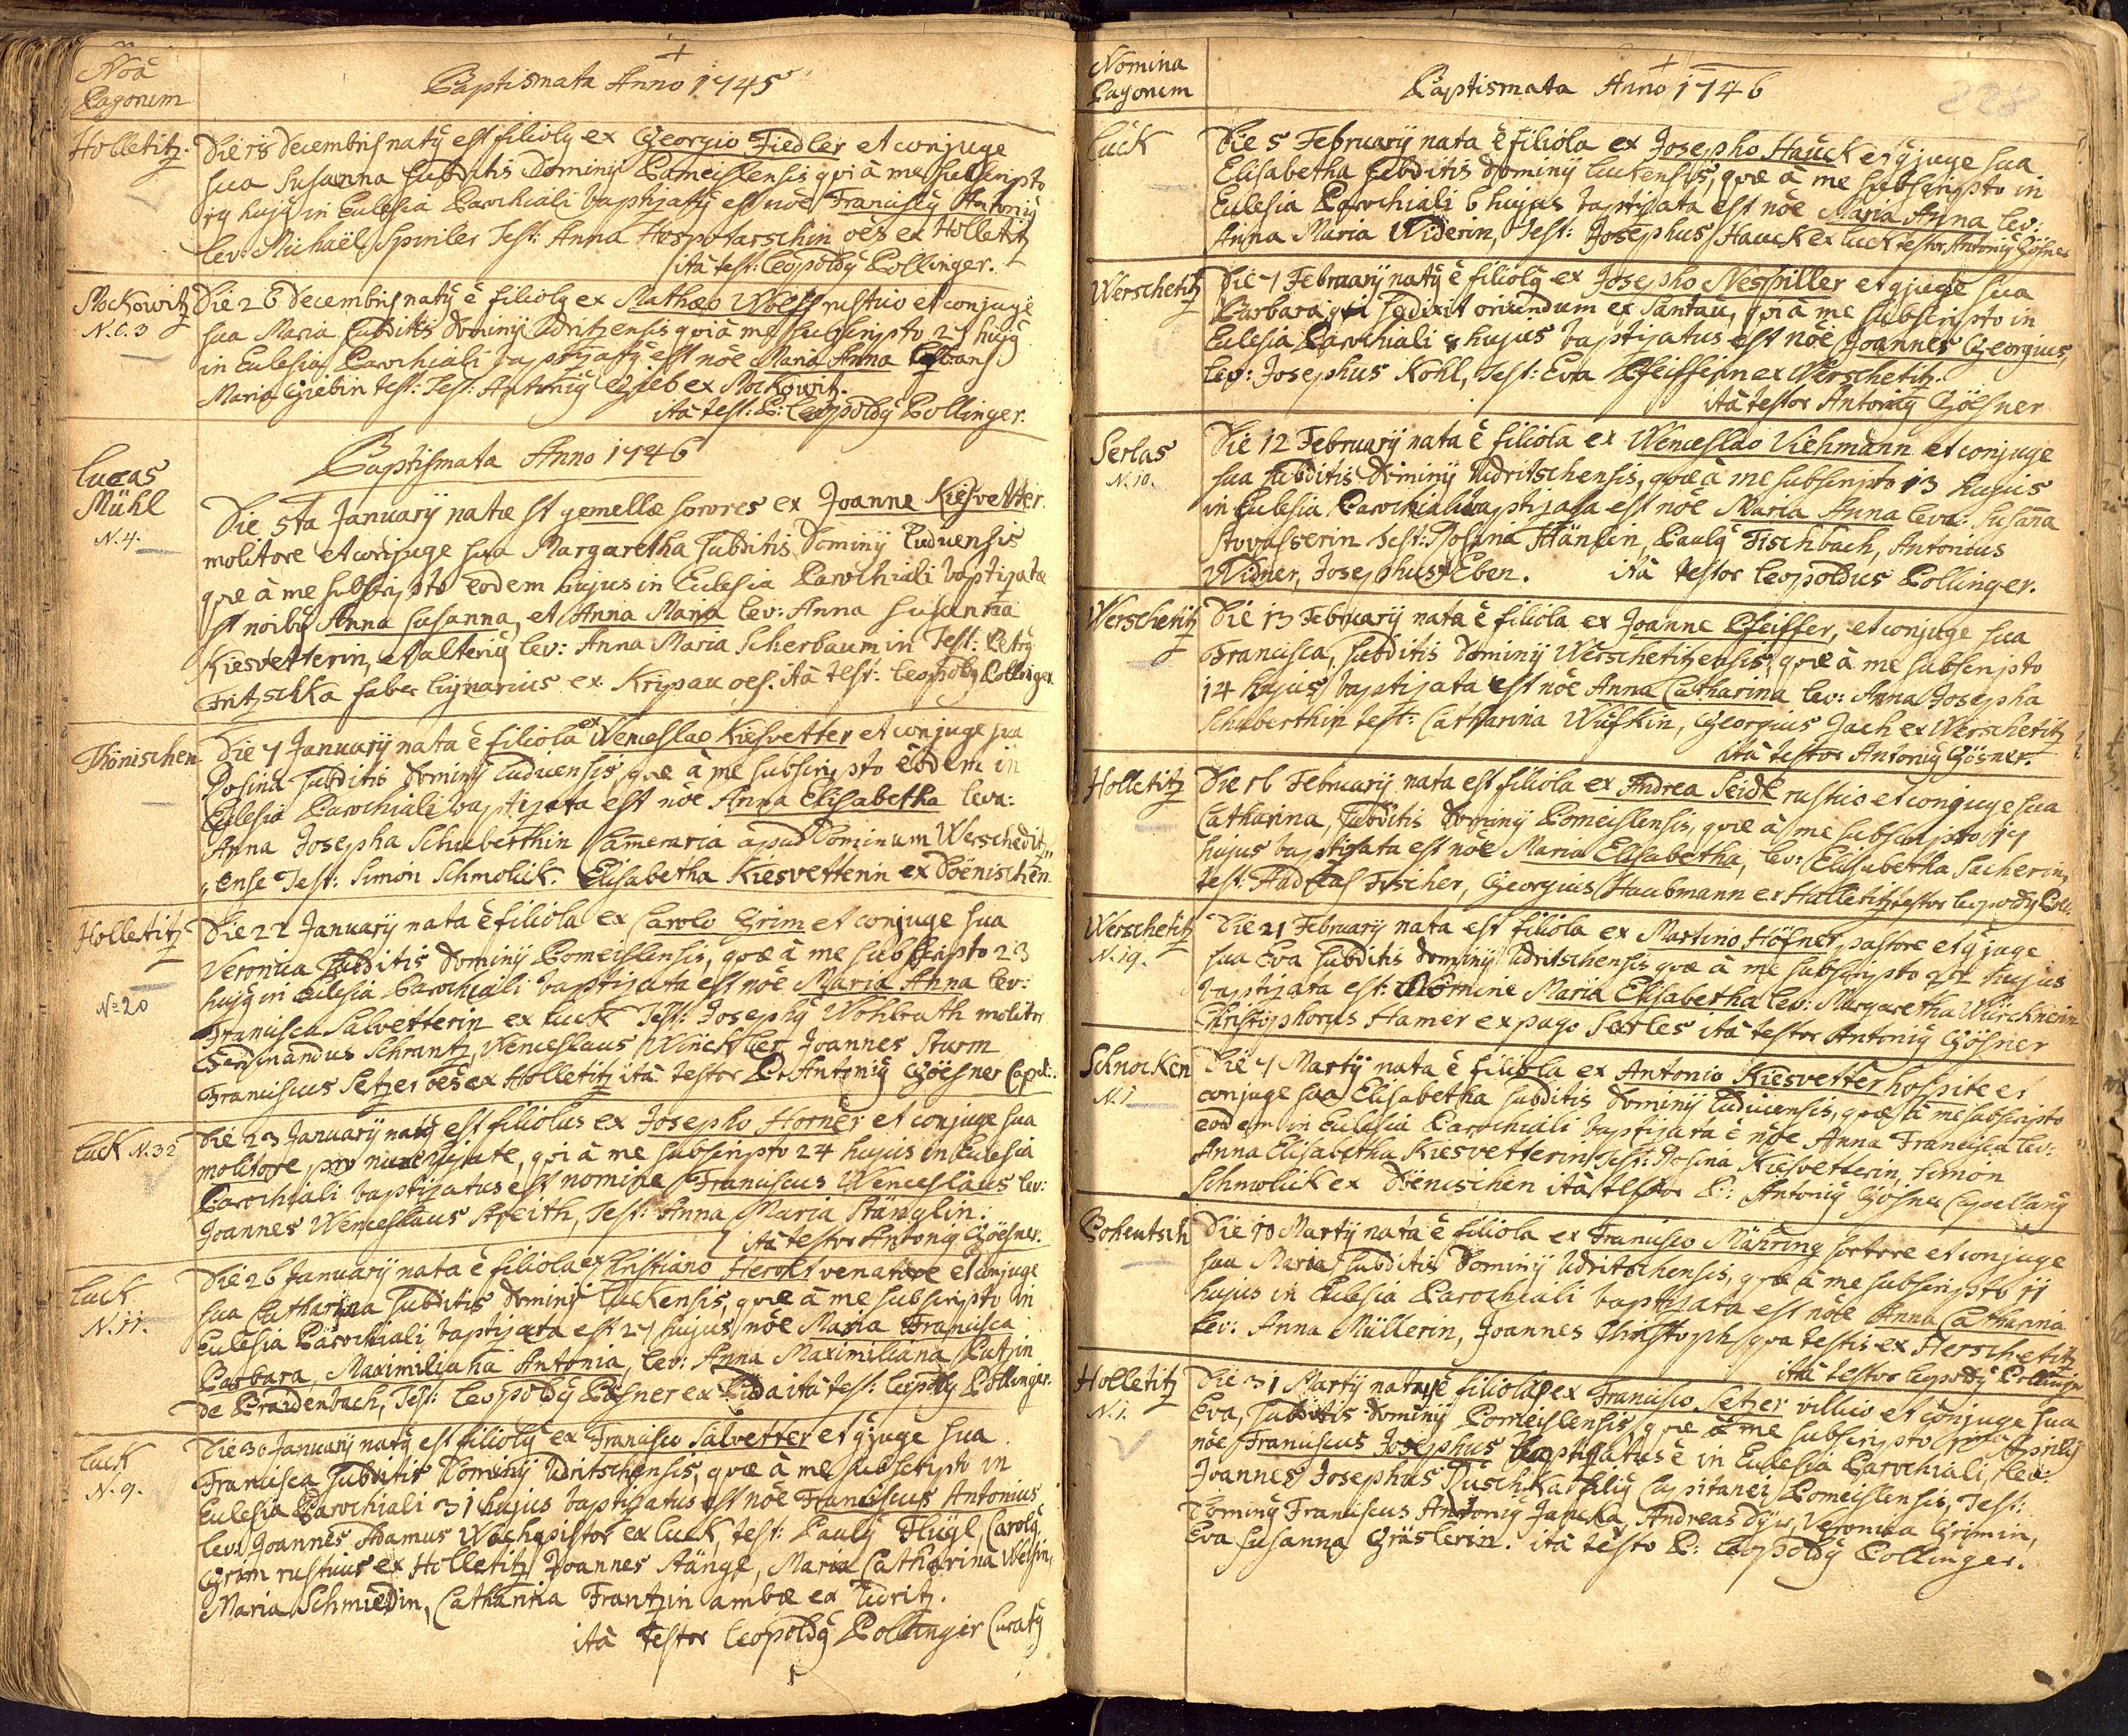 Noa
Pagorum
Baptismata Anno 1745
Holletitz.
Die 18 Decembris natỹ est filiolỹ ex Georgio Fiedler et conjuge
sua Susanna subditis Dominij Pomeislensis qvi à me subscripto
19 hujỹ in Eclesia Parochiali baptizatỹ est nõe Franciscỹ Antoniỹ
lev: Michaël Spinler Test: Anna Hospotarschin oẽs ex Holletitz
ità test: Leopoldỹ Pollinger.
Mockowitz
N.C. 3
Die 26 Decembris natỹ ẽ filiolỹ ex Mathæo Wolff rustico et conjuge
sua Maria subditis Dominij Udritzensis qvi à me subscripto 27 hujỹ
in Eclesia Parochiali baptizatỹ est nõe Maria Anna levans
Maria Giebin test: Test: Antoniỹ Gieb ex Mockowit.
ità test: P: Leopoldỹ Pollinger.
Baptismata Anno 1746
Lucas
Mühl
N. 4.
Die 5ta Januarij natæ st gemellæ sorores ex Joanne Kiesvetter
molitore et conjuge sua Margaretha subditis Dominij Luduensis
qvæ à me subscripto eodem hujus in Eclesia Parochiali baptizatæ
st noibỹ Anna Susanna, et Anna Maria lev: Anna Susanna
Kiesvetterin, et alteriỹ lev: Anna Maria Scherbaumin Test: Petrỹ
Fritzschka faber lignarius ex Kripau oes. ità test: Leopoldỹ Pollinger
Thönischen
Die 7 Januarij nata ẽ filiola ex Wenceslao Kiesvetter et conjuge sua
Rosina subditis Dominij Luduensis, qvæ à me subscripto eodem in
Eclesia Parochiali baptizata est nõe Anna Elisabetha leva:
Anna Josepha Schuberthin Cameraria apud Dominum Werschedit,,
,,zense Test: Simon Schmolick. Elisabetha Kiesvetterin ex Döenischen
Holletitz
No 20
Die 22 Januarij nata ẽ filiola ex Carolo Grim et conjuge sua
Veronica subditis Dominij Pomeislensis, qvæ à me subscripto 23
hujỹ in Eclesia Parochiali baptizata est nõe Maria Anna lev:
Francisca Salvetterin ex Luck Test: Josephỹ Wohlrath molitor
Ferdinandus Schrantz, Wenceslaus Winckler Joannes Sturm
Franciscus Setzer oẽs ex Holletitz ità testor P. Antoniỹ Göesner Capel:
Luck N. 32
Die 23 Januarij natỹ est filiolus ex Josepho Horner et conjuge sua
molitore pro nunc, qvi à me subscripto 24 hujus in Eclesia
Parochiali baptizatus est nomine Franciscus Wenceslaus lev:
Joannes Wenceslaus Streith, Test: Anna Maria Stänglin.
ità testor Antoniỹ Göesner.
Luck
N. 11.
Die 26 Januarij nata ẽ filiola ex Christiano Herolt venatore et conjuge
sua Catharina subditis Dominij Luckensis, qvæ à me subscripto in
Eclesia Parochiali baptizata est 27 hujus nõe Maria Francisca
Barbara, Maximiliana Antonia, lev: Anna Maximiliana Putzin
de Braidenbach, Test: Leopoldỹ Posner ex Luda ità test: Leopoldỹ Pollinger.
Luck
N. 9.
Die 30 Januarij natỹ est filiolỹ ex Francisco Salvetter et gjuge sua
Francisca subditis Dominij Udritschensis, qvæ à me subscripto in
Eclesia Parochiali 31 hujus baptizatus est nõe Franciscus Antonius
lev: Joannes Adamus Woch pistor ex Luck, test: Paulỹ Flügl, Carolỹ
Grim rusticus ex Holletitz Joannes Stängl, Maria Catharina
Maria Schmiedin, Catharina Frantzin ambæ ex Udritz.
ità testor Leopoldỹ Pollinger Curatỹ
Nomina
Pagorum
Baptismata Anno 1746
228
Luck
Die 5 Februarij nata ẽ filiola ex Josepho Hauck et gjuge sua
Elisabetha subditis Dominij Luckensis, qvæ à me subscripto in
Eclesia Parochiali 6 hujus baptizata est nõe Maria Anna lev:
Anna Maria Widerin, Test: Josephus Hauck ex Luck testor Antoniỹ Gösner
Werschetitz
Die 7 Februarij natỹ ẽ filiolỹ ex Josepho Nespiller et gjuge sua
Barbara qvi se dixit oriundum ex Santau, qvi à me subscripto in
Eclesia Parochiali 8 hujus baptizatus est nõe Joannes Georgius,
lev: Josephus Kohl, Test: Eva Pfeifferin ex Werschetitz.
ità testor Antoniỹ Göesner
Serlas
N. 10.
Die 12 Februarij nata ẽ filiola ex Wenceslao Viehmann et conjuge
sua subditis Dominij Udritschensis, qvæ à me subscripto 13 hujus
in Eclesia Parochiali baptizata est nõe Maria Anna leva: Susana
Stovasserin Test: Rosina Hänlin, Paulỹ Fischbach, Antonius
Widner, Josephus Eben. ità testor Leopoldus Pollinger.
Werschetitz
Die 13 Februarij nata ẽ filiola ex Joanne Pfeiffer, et conjuge sua
Francisca, subditis Dominij Werschetitzensis, qvæ à me subscripto
14 hujus baptizata est nõe Anna Catharina lev: Anna Josepha
Schuberthin test: Catharina Wüfkin, Georgius Jach ex Werschetitz
ità testor Antoniỹ Gösner.
Holletitz
Die 16 Februarij nata est filiola ex Andrea Seidl rustico et conjuge sua
Catharina, subditis Dominij Pomeislensis, qvæ à me subscripto 17
hujus baptizata est nõe Maria Elisabetha, lev: Elisabetha Sacherin,
Test: Fischer, Georgius Haubmann ex Halletitz testor Leopoldỹ Poll:
Werschetitz
N. 19.
Die 21 Februarij nata est filiola ex Martino Höfner, pastore et gjuge
sua Eva subditis Dominij Udritschensis qvæ à me subscripto hujus
baptizata est: Nomine Maria Elisabetha lev: Margaretha Würcknerin
Christophorus Hamer ex pago Serles ità testor Antoniỹ Gösner
Schnocken
N. 1.
Die 7 Martij nata ẽ filiola ex Antonio Kiesvetter hospite et
conjuge sua Elisabetha subditis Dominij Luduensis, qvæ à me subscripto
eodem in Eclesia Parochiali baptizata ẽ nõe Anna Francisca lev:
Anna Elisabetha Kiesvetterin Test: Rosina Kiesvetterin, Simon
Schmolick ex Döenischen ità testor P: Antoniỹ Gösner Capellanỹ
Pohentsch
Die 10 Martij nata ẽ filiola ex Francisco Mähring sartore et conjuge
sua Maria subditis Dominij Udritschensis, qvæ à me subscripto 11
hujus in Eclesia Parochiali baptizata est nõe Anna Catharina
lev: Anna Müllerin, Joannes Christoph qva testis ex Herschetitz
ità testor Leopoldỹ Pollinger
Holletitz
N. 1.
Die 31 Martij natus ẽ filiolỹ ex Francisco Setzer villico et conjuge sua
Eva, subditis Dominij Pomeislensis, qvæ à me subscripto Aprilis
nõe Franciscus Josephus baptizatus ẽ in Eclesia Parochiali, lev:
Joannes Josephus Duschka filiỹ Capitanei Pomeislensis, Test:
Dominỹ Franciscus Antoniỹ Jancka, Andreas, Veronica Grimin,
Eva Susanna Gräslerin. ità testo P: Leopoldỹ Pollinger.